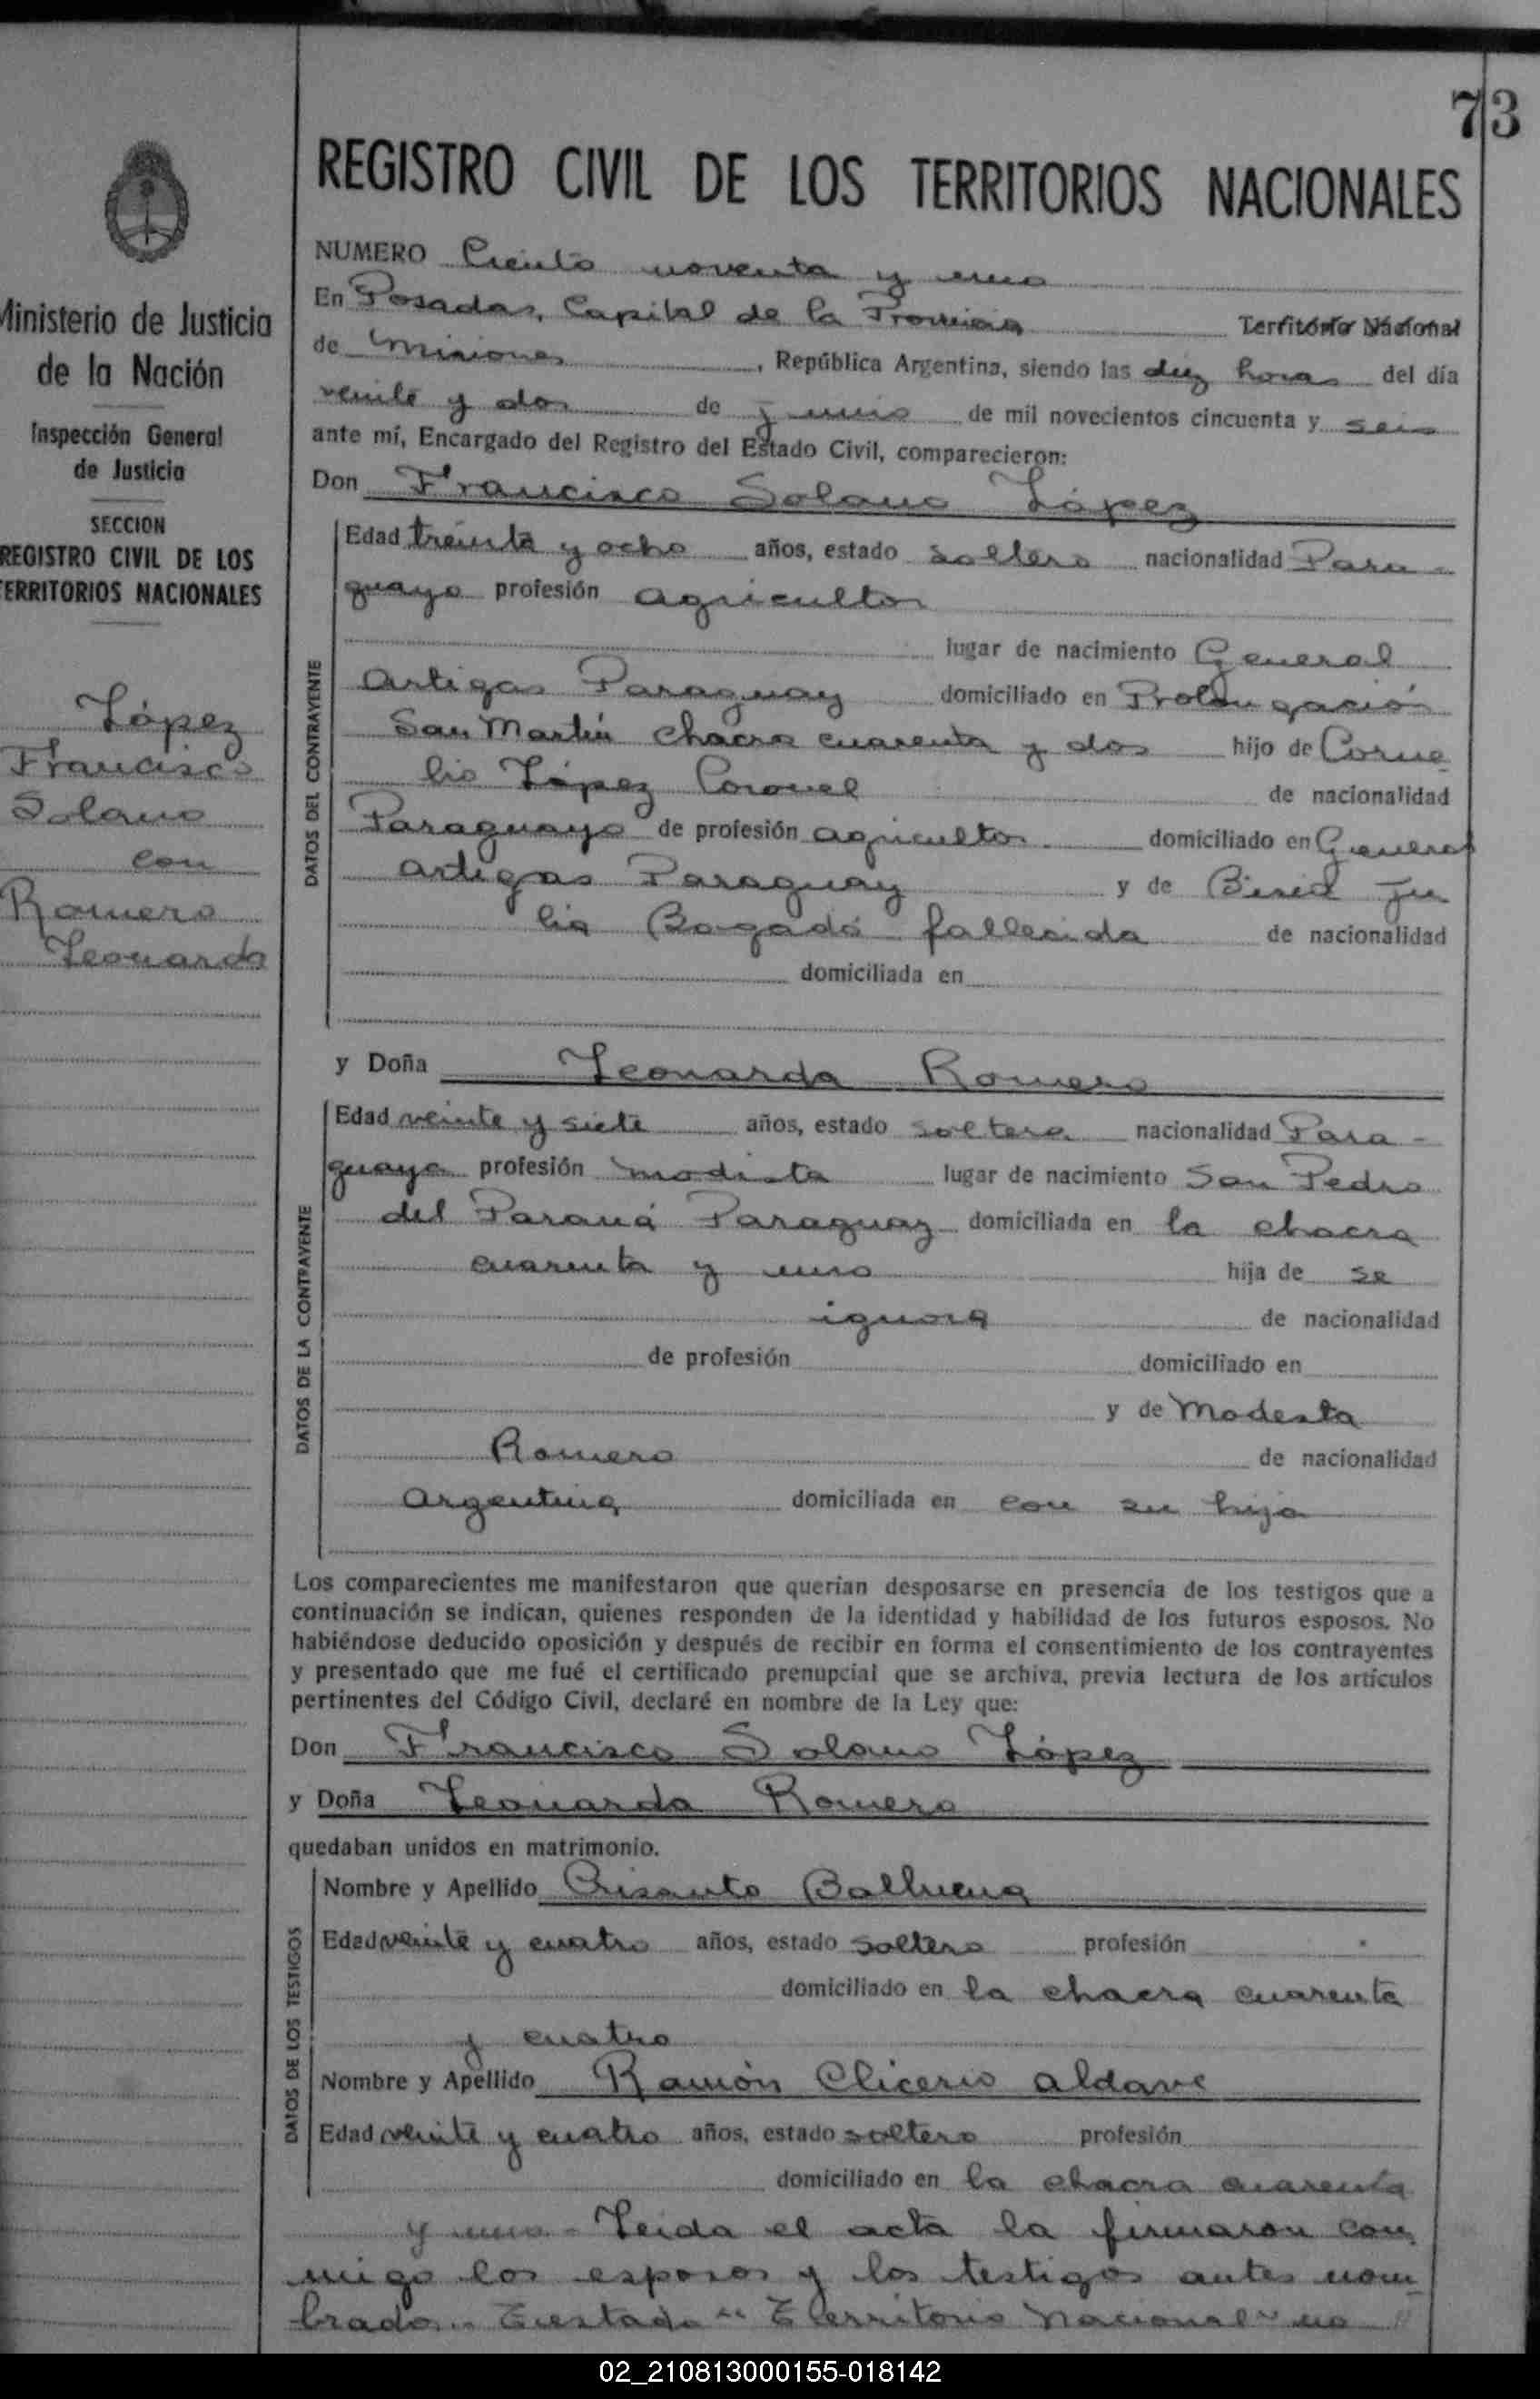 73
REGISTRO CIVIL DE LOS TERRITORIOS NACIONALES
Ministerio de Justicia
de la Nación
Inspección General
de Justicia
SECCION
REGISTRO CIVIL DE LOS
TERRITORIOS NACIONALES
López
Francisco
Solano
con
Romero
Leonarda
NUMERO Ciento noventa y uno
En Posadas, Capital de la Provincia Territorio Nacional
de Misiones, República Argentina, siendo las diez horas del día
veinte y dos de junio de mil novecientos cincuenta y seis
ante mí, Encargado del Registro del Estado Civil, comparecieron:
Don Francisco Solano López
DATOS DEL CONTRAYENTE
Edad treinta y ocho años, estado soltero nacionalidad Para-
guayo profesión agricultor
lugar de nacimiento General
Artigas Paraguay domiciliado en Prolongación
San Martín chacra cuarenta y dos hijo de Corne
lio López Coronel de nacionalidad
Paraguayo de profesión agricultor domiciliado en General
Artigas Paraguay y de Ju
lia Bogado fallecida de nacionalidad
domiciliada en
y Doña Leonarda Romero
DATOS DE LA CONTRAYENTE
Edad veinte y siete años, estado soltera nacionalidad Para-
guaya profesión modista lugar de nacimiento San Pedro
del Paraná Paraguay domiciliada en la chacra
cuarenta y uno hija de se
ignora de nacionalidad
de profesión domiciliado en
y de Modesta
Romero de nacionalidad
Argentina domiciliada en con su hija
Los comparecientes me manifestaron que querían desposarse en presencia de los testigos que a
continuación se indican, quienes responden de la identidad y habilidad de los futuros esposos. No
habiéndose deducido oposición y después de recibir en forma el consentimiento de los contrayentes
y presentado que me fué el certificado prenupcial que se archiva, previa lectura de los artículos
pertinentes del Código Civil, declaré en nombre de la Ley que:
Don Francisco Solano López
y Doña Leonarda Romero
quedaban unidos en matrimonio.
DATOS DE LOS TESTIGOS
Nombre y Apellido Crisanto Balbuena
Edad veinte y cuatro años, estado soltero profesión
domiciliado en la chacra cuarenta
y cuatro
Nombre y Apellido Ramón Clicerio Aldave
Edad veinte y cuatro años, estado soltero profesión
domiciliado en la chacra cuarenta
y uno - Leida el acta la firmaron con
migo los esposos y los testigos antes nom
brados. Testado "Territorio Nacional" no
02_210813000155-018142